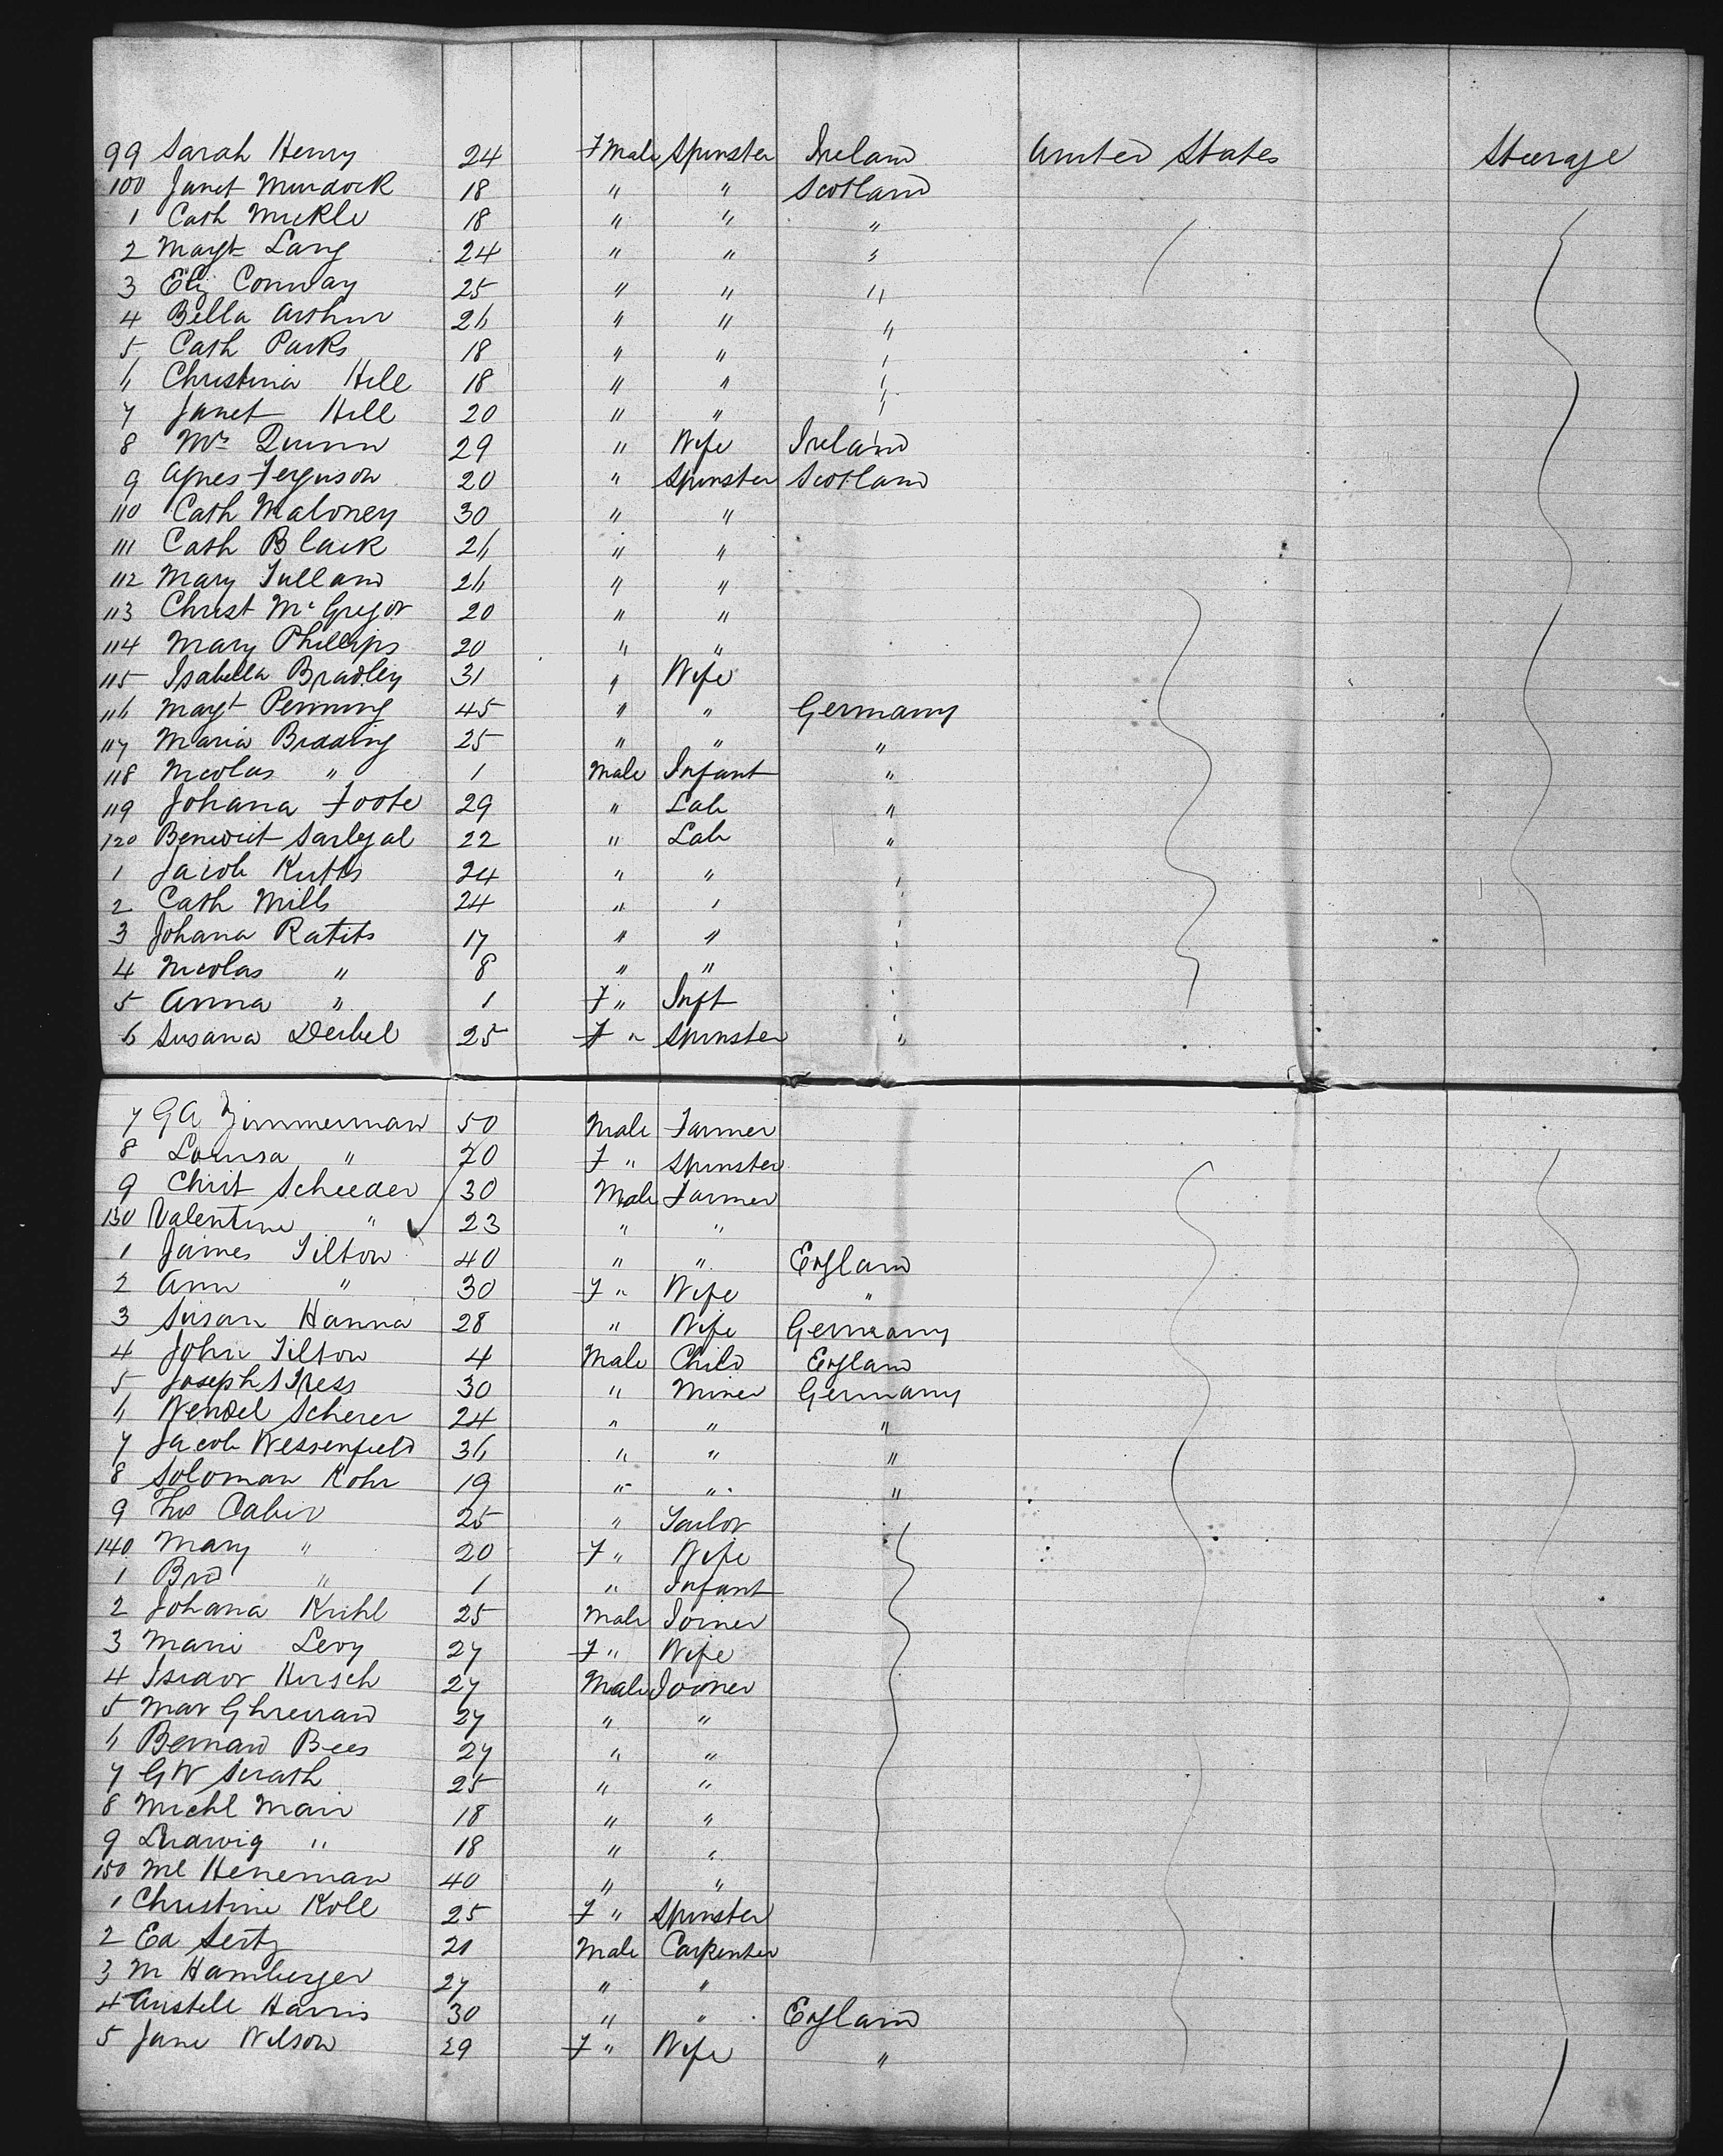 99 Sarah Henry 24 Fmale Spinster Ireland United States Steerage
100 Janet Murdock 18 " " Scotland
1 Cath Mickle 18 " " "
2 Magt Lang 24 " " "
3 Eliz Conway 25 " " "
4 Bella Arthur 26 " " "
5 Cath Parks 18 " " "
6 Christina Hill 18 " " "
7 Janet Hill 20 " " "
8 Mrs Quinn 29 " Wife Ireland
9 Agnes Ferguson 20 " Spinster Scotland
110 Cath Maloney 30 " "
111 Cath Black 26 " "
112 Mary Tulland 26 " "
113 Christ McGregor 20 " "
114 Mary Phillips 20 " "
115 Isabella Bradley 31 " Wife
116 Magt Penning 45 " " Germany
117 Maria Bidding 25 " " "
118 Nicolas " 1 Male Infant "
119 Johana Foote 29 " Lab "
120 Benedict 22 " Lab "
1 Jacob Kutts 24 " " "
2 Cath Mills 24 " " "
3 Johana Ratits 17 " " "
4 Nicolas " 8 " " "
5 Anna " 1 F " Inft "
6 Susana Derbel 25 F " Spinster "
7 G A Zimmerman 50 Male Farmer
8 Louisa " 20 F " Spinster
9 Christ Scheeder 30 Male Farmer
130 Valentine " 23 " "
1 James Tilton 40 " " England
2 Ann " 30 F " Wife "
3 Susan Hanna 28 " Wife Germany
4 John Tilton 4 Male Child England
5 Joseph Tress 30 " Miner Germany
6 Wendel Scherer 24 " " "
7 Jacob Wessenfield 36 " " "
8 Soloman Kohn 19 " " "
9 Cahir 25 " Tailor
140 Mary " 20 F " Wife
1 " 1 " Infant
2 Johana Kuhl 25 Male Joiner
3 Marie Levy 27 F " Wife
4 Isidor Hirsch 27 Male Joiner
5 27 " "
6 Bernard Bees 27 " "
7 G W 25 " "
8 Michl Mair 18 " "
9 Ludwig " 18 " "
150 Ml Heneman 40 " "
1 Christine Koll 25 F " Spinster
2 Ed Seitz 21 Male Carpenter
3 M Hamberger 27 " "
4 Harris 30 " " England
5 Jane Wilson 29 F " Wife "